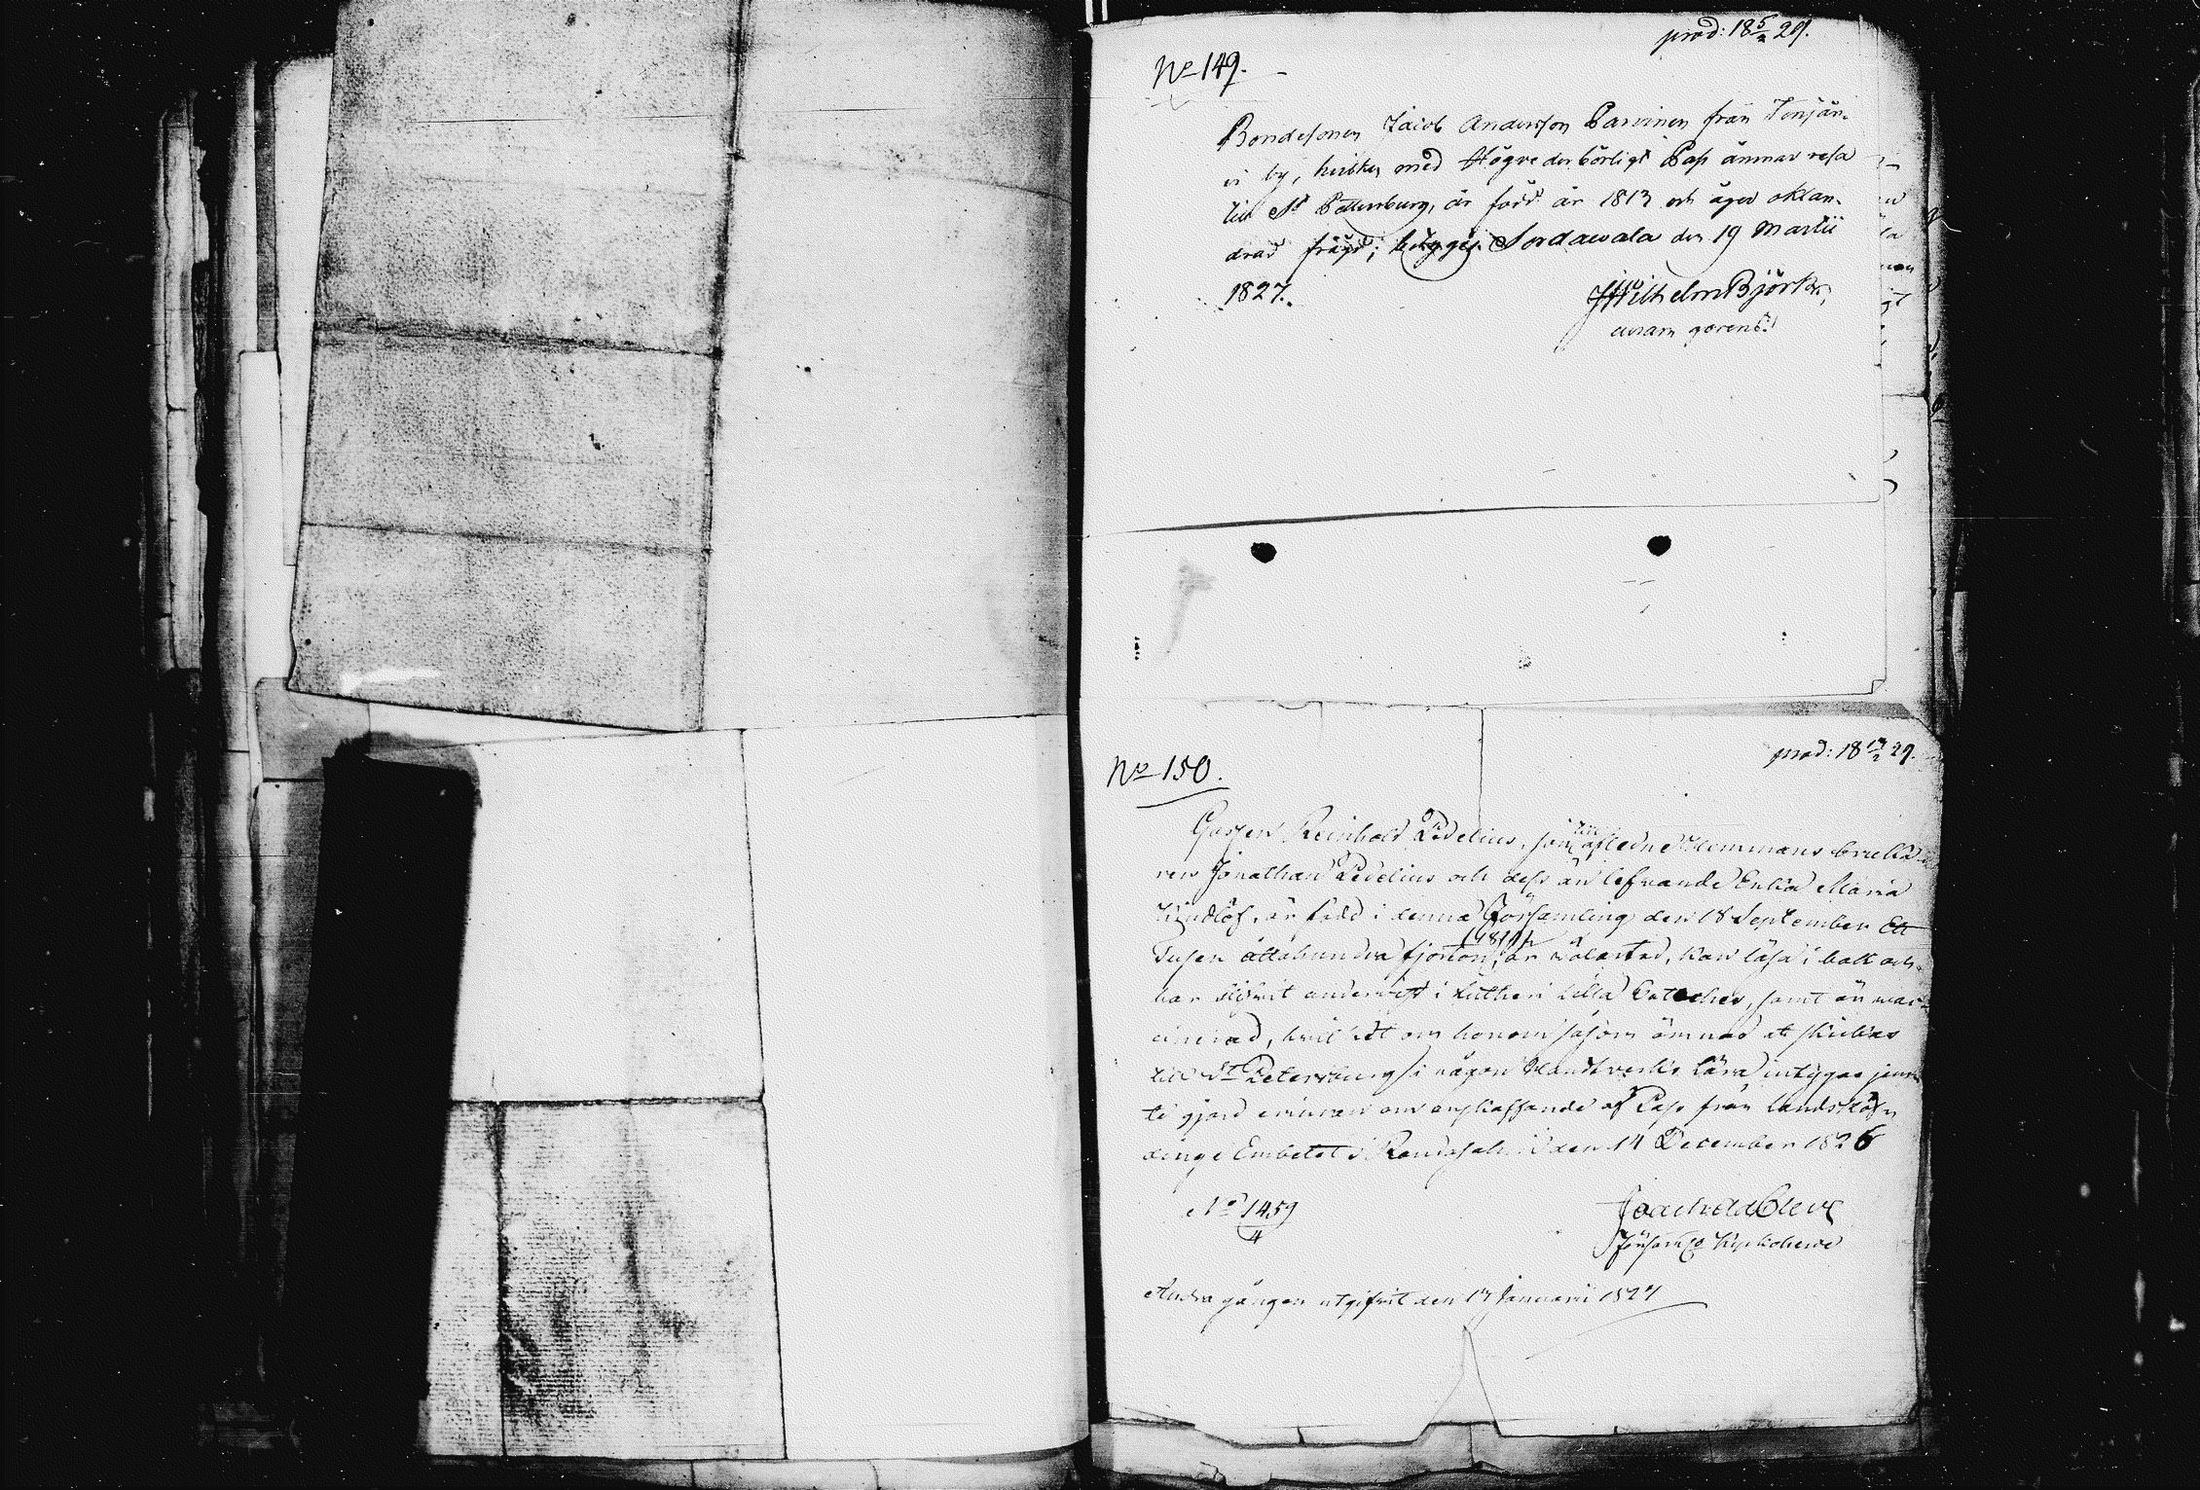 prod: 18 5/2 29.
No 149.
Bondesonen Jacob Andersson Parvinen från Tenjär-
vi by, hvilken med Högvederbörligt Pass ämnar resa
till St Pettersburg, är född år 1813 och äger oklan-
drad frägd; betygar Sordawala den 19 Martii
1827.
J Wilhelm Björk
curam gerens.
prod: 18 17/2 29.
No 150.
Gossen Reinhold Zidelius, son till afledne Hemmans bruka-
ren Jonathan Zidelius och dess än lefvande Enka Maria
är född i denna Församling den 18 September Ett
Tusen åttahundra fjorton, (1814) är kan läsa i bok och
har undervist i Lutheri Lilla Cateches, samt är vac-
cinerad, hvilket om honom såsom ämnad at skickas
till St Petersburg i någon Handtverks Lära intygas jemn-
te gjord om anskaffande af Pass från Landshöf-
dinge Embetet i den 14 December 1826
No 1459
4
Joach
Församl. Kyrkoherde
Andra gången utgifvit den 17 Januarii 1827